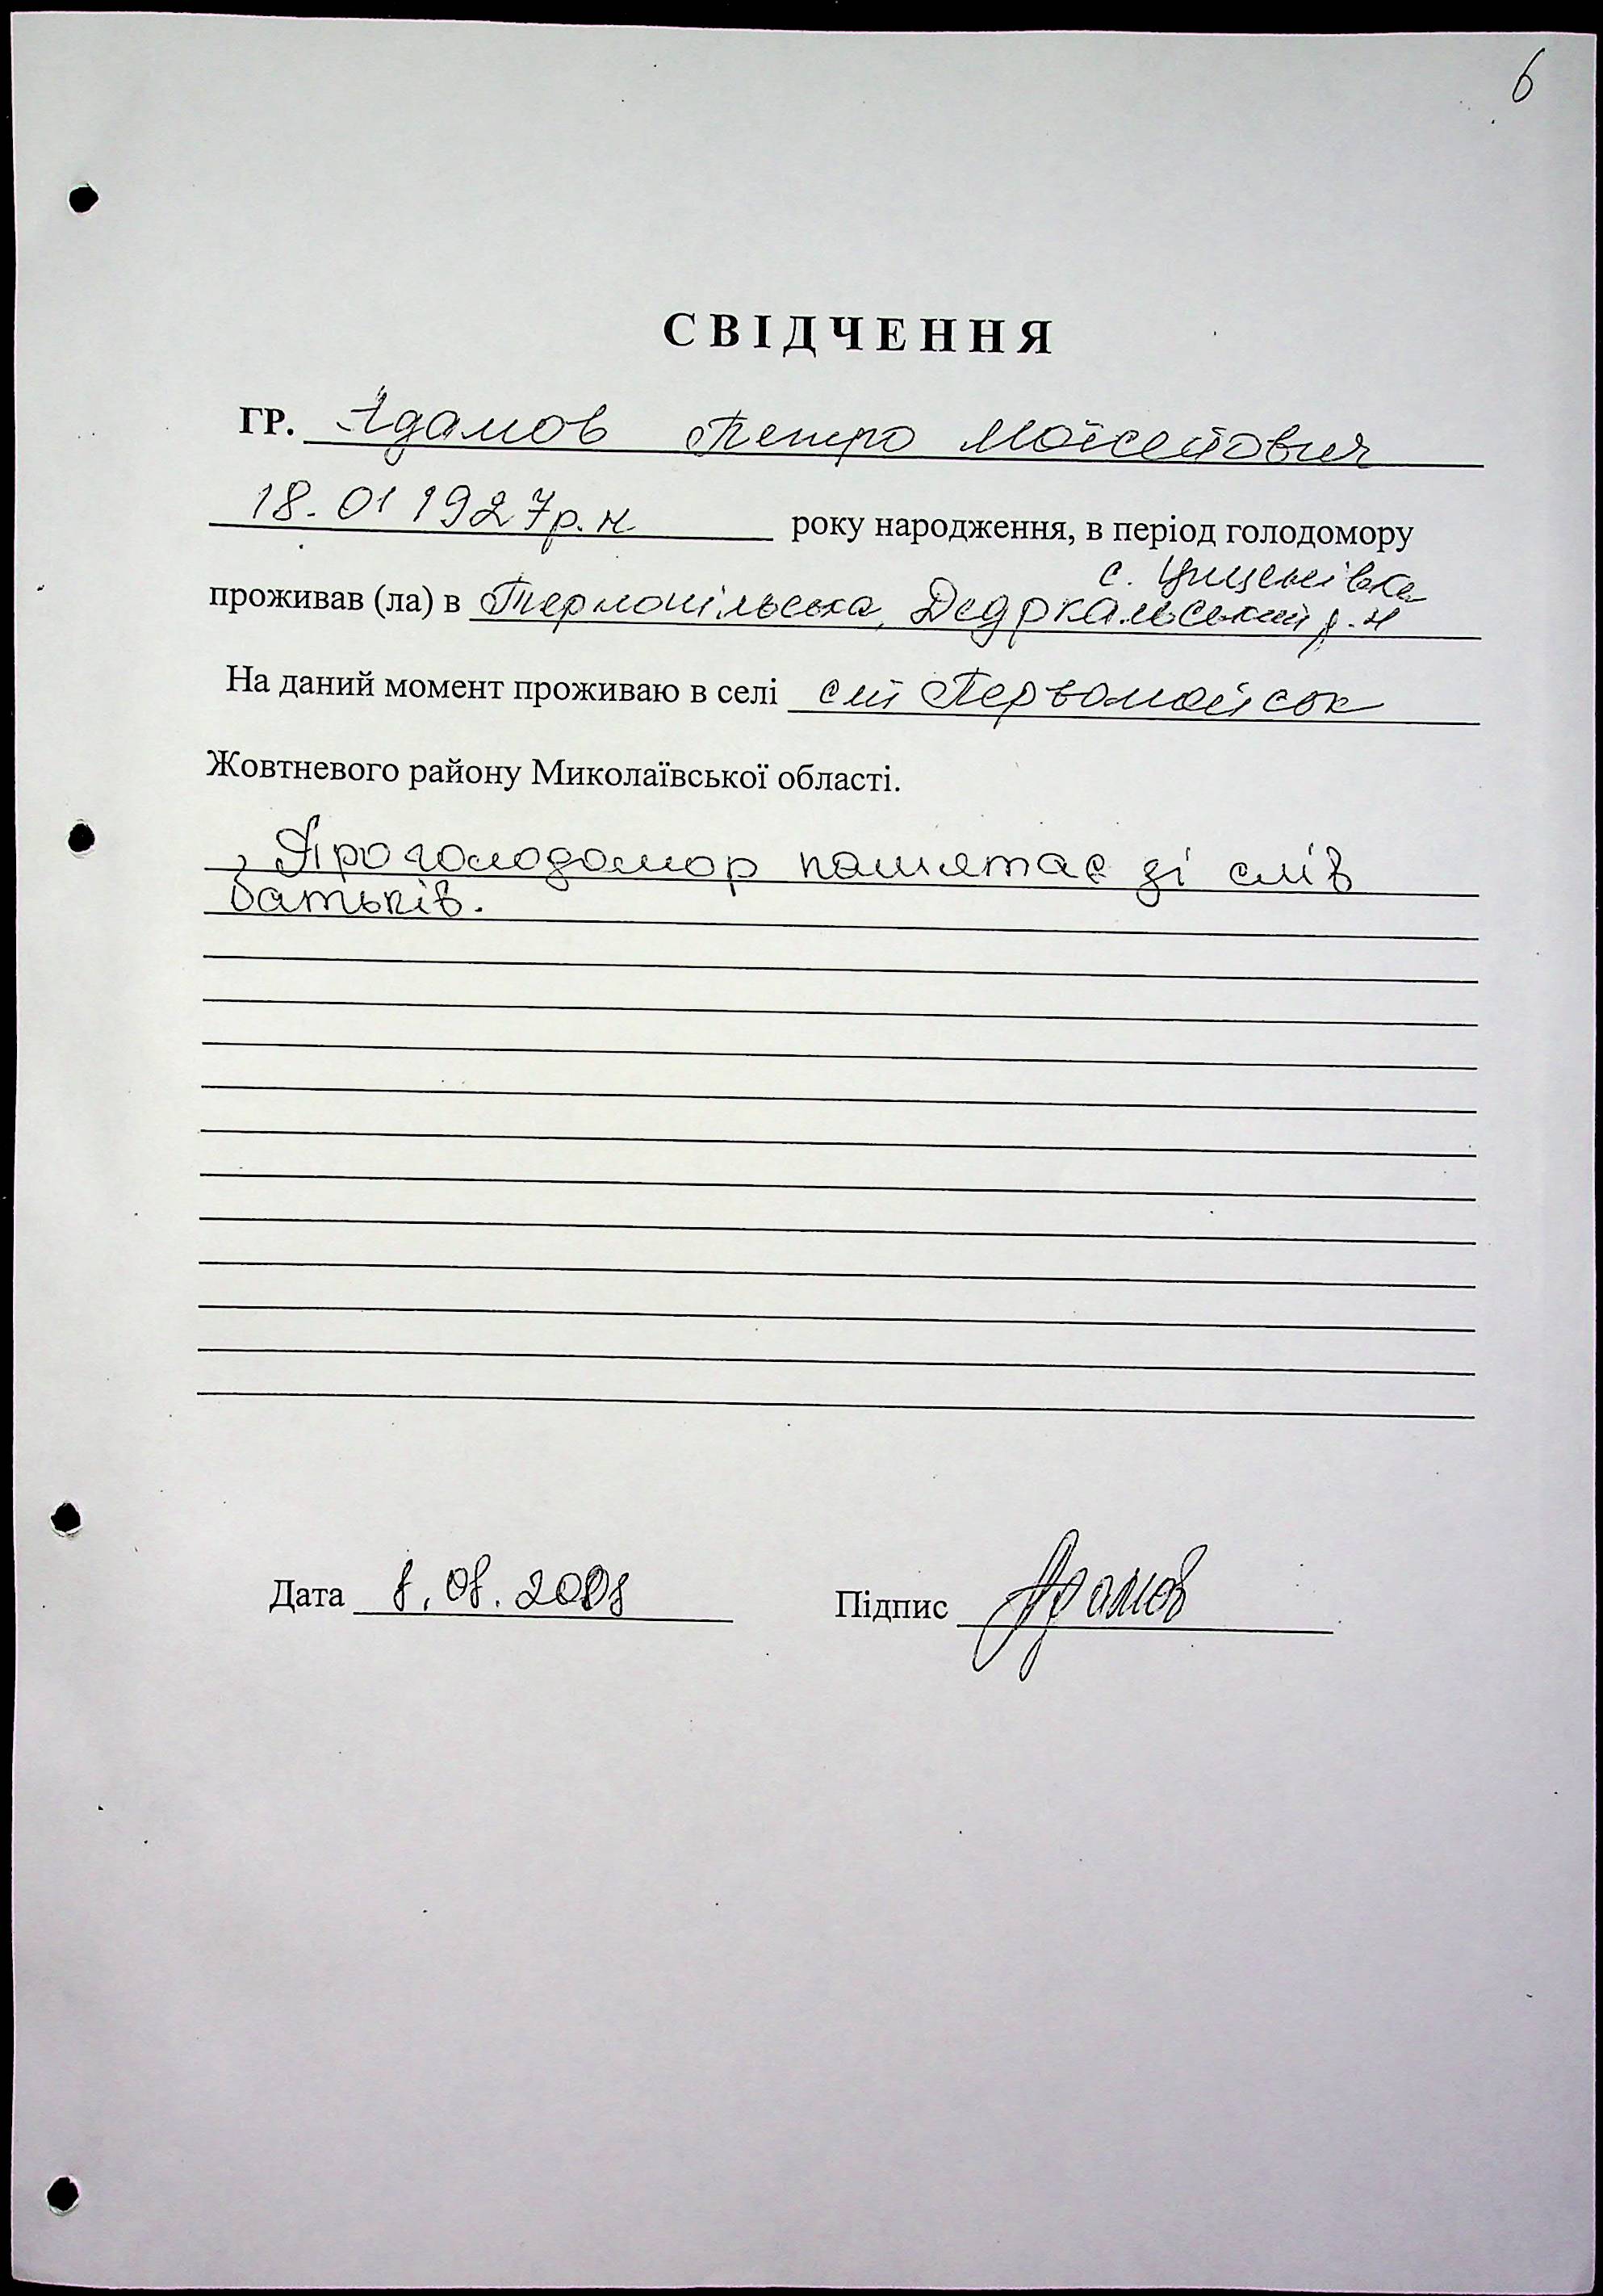 6
СВІДЧЕННЯ
ГР. Адамов Петро Мойсейович
18.01 1927р.н. року народження, в період голодомору
с. Циценівка
проживав (ла) в Тернопільська, Дедркальський р-н
На даний момент проживаю в селі смт Первомайськ
Жовтневого району Миколаївської області.
Про голодомор памятає зі слів
батьків.
Дата 8.08.2008 Підпис Адамов